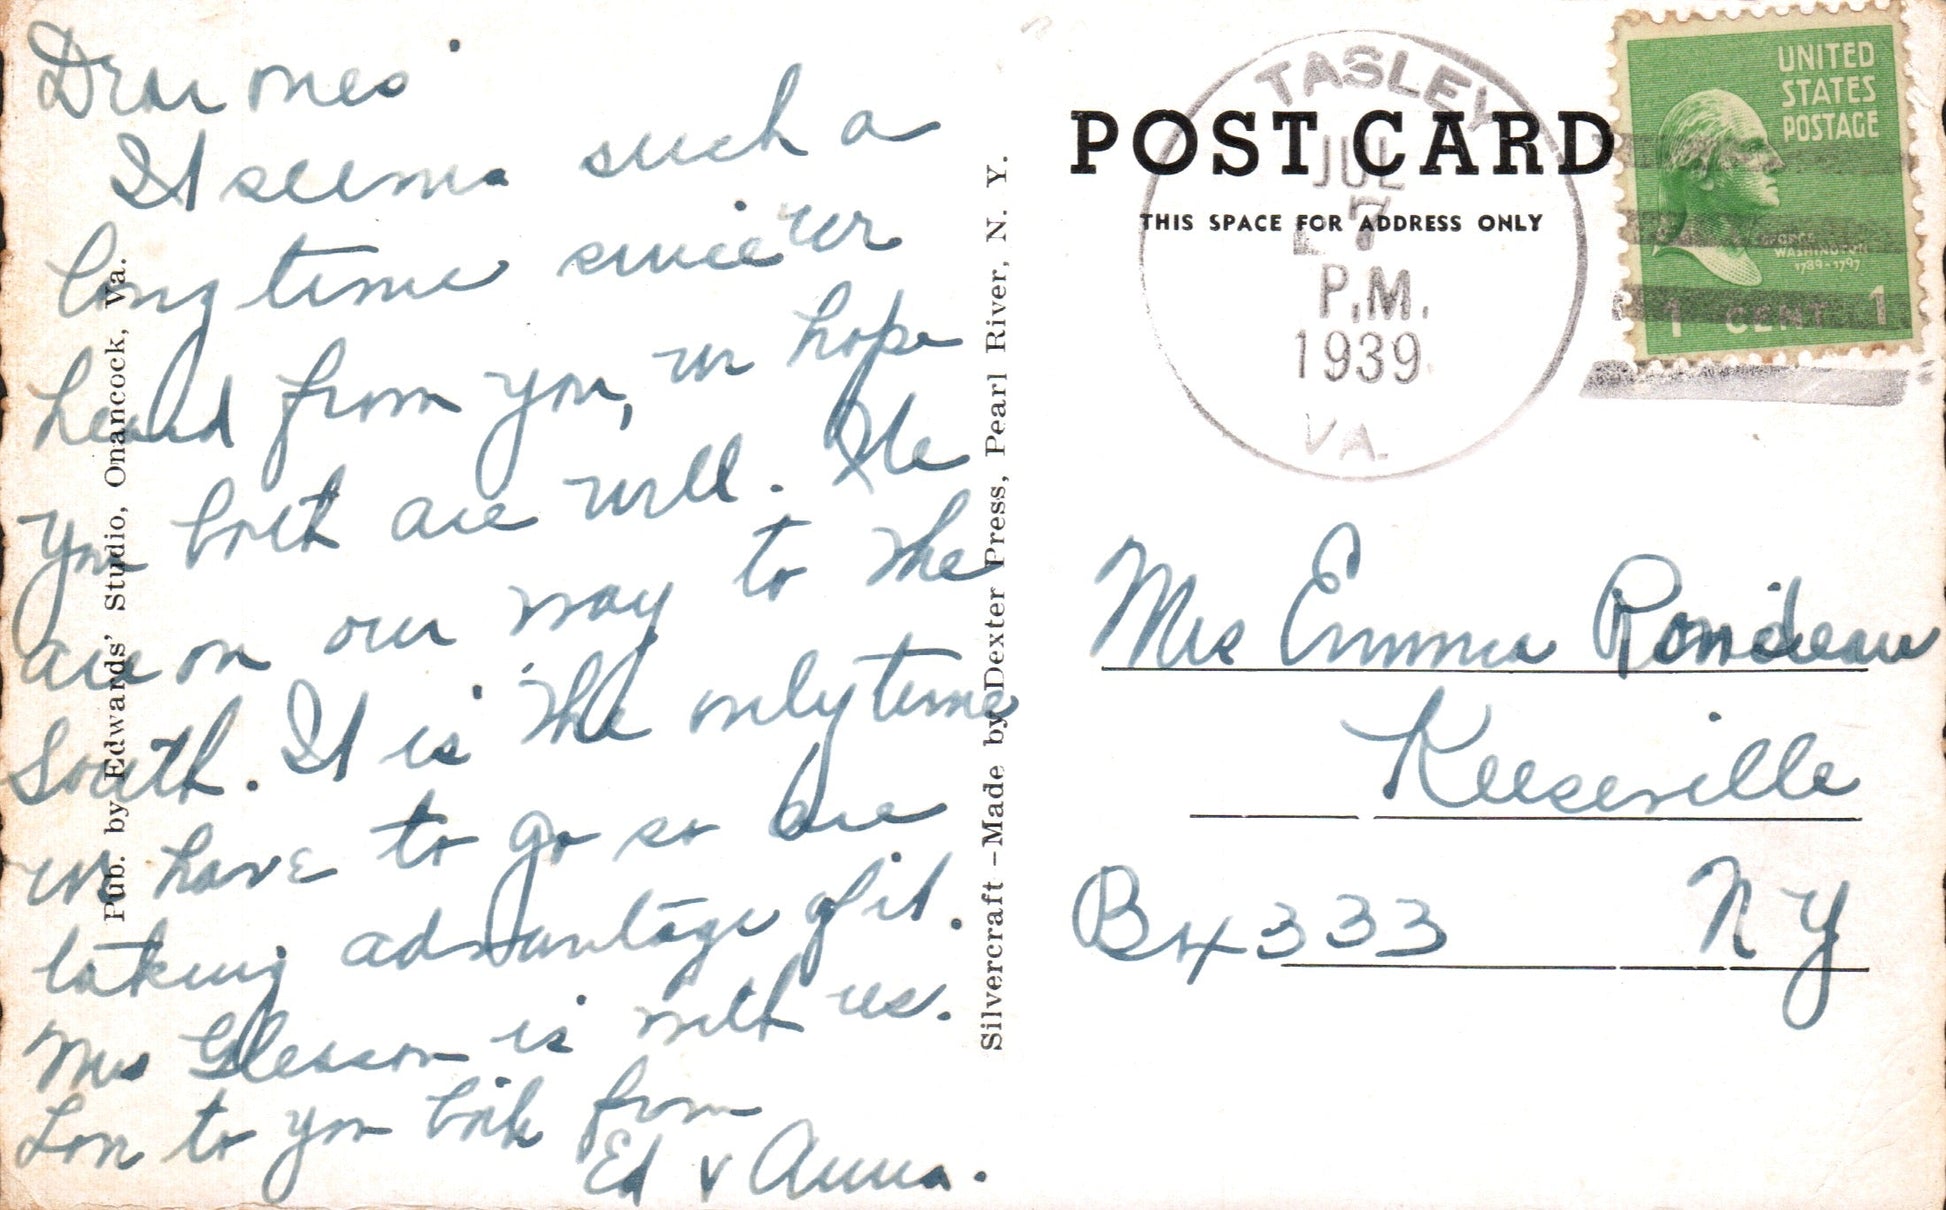 Dear ones
It seems such a
long time since we
heard from you, we hope
you both are well. We
are on our way to the
South. It is the only time
we have to go so are
taking advantage of it.
Mrs Glesson is with us.
Lov to you both from
Ed & Anna.
Pub. by Edwards' Studio, Onancock, Va.
Silvercraft—Made by Dexter Press, Pearl River, N. Y.
POST CARD
THIS SPACE FOR ADDRESS ONLY
TASLEY
JUL
7
P.M.
1939
VA.
UNITED
STATES
POSTAGE
GEORGE
WASHINGTON
1789-1797
1 CENT 1
Mrs Emma Rondeau
Keeseville
Bx 333 NY